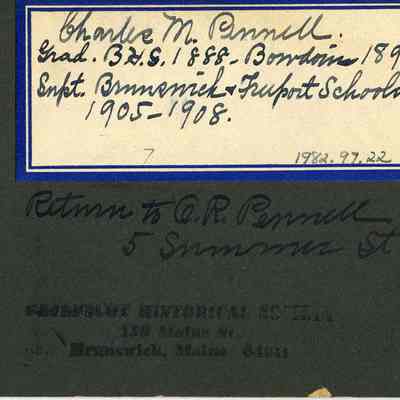 Charles M. Pennell.
Grad. B.H.S. 1888 - Bowdoin 189
Supt. Brunswick & Freeport Schools
1905-1908.
7 1982.97.22
Return to C. R. Pennell
5 Summer St
HISTORICAL
Maine St.
Brunswick, Maine 04011